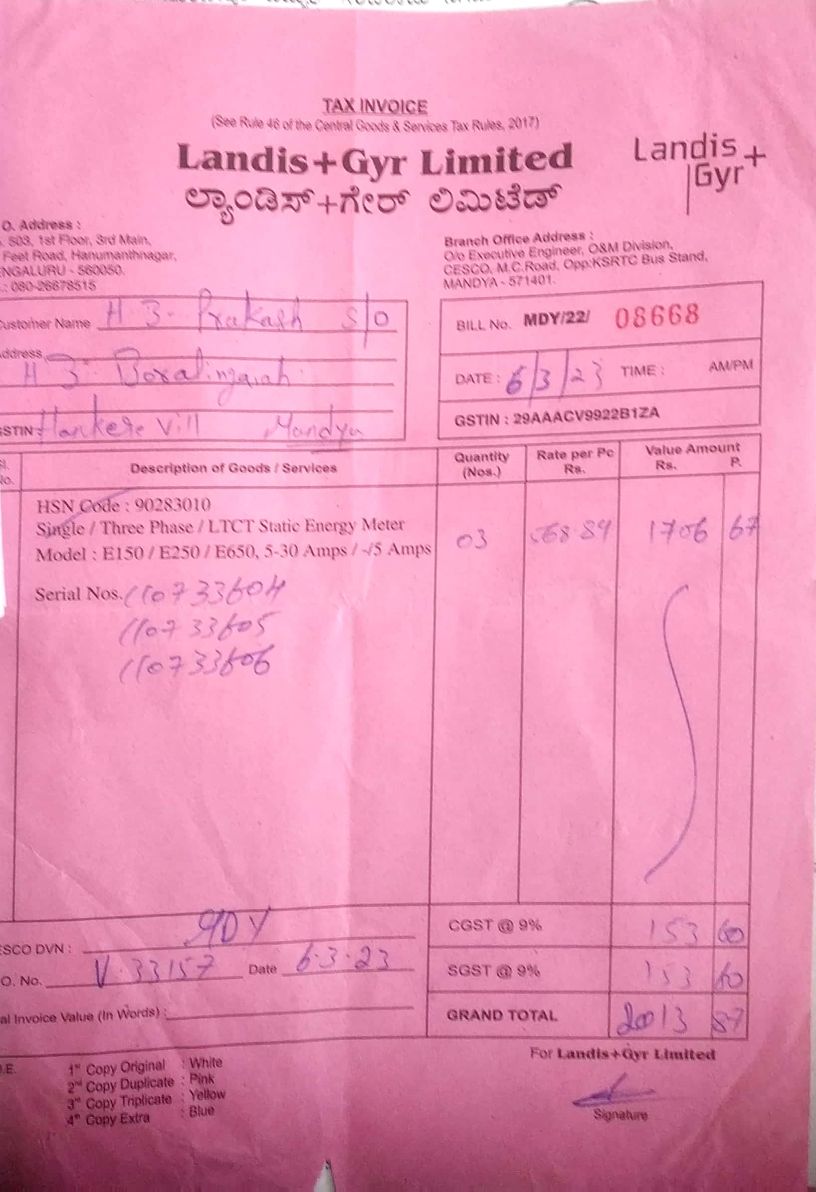 TAX INVOICE
(See Rule 46 of the Central Goods & Services Tax Rules, 2017)
Landis+Gyr Limited
ಲ್ಯಾಂಡಿಸ್+ಗೇರ್ ಲಿಮಿಟೆಡ್
Landis+
Gyr
O. Address :
503, 1st Floor, 3rd Main,
Feet Road, Hanumanthnagar,
ENGALURU - 560050.
: 080-26678515
Branch Office Address :
O/o Executive Engineer, O&M Division,
CESCO, M.C.Road, Opp:KSRTC Bus Stand,
MANDYA - 571401.
ustomer Name H 3. Prakash S/O
ddress
H 3. Boralingaiah.
STIN : Hankere Vill Mandya
BILL No. MDY/22/ 08668
DATE : 6/3/23 TIME : AM/PM
GSTIN : 29AAACV9922B1ZA
l. No. Description of Goods / Services Quantity (Nos.) Rate per Pc Rs. Value Amount Rs. P.
HSN Code : 90283010
Single / Three Phase / LTCT Static Energy Meter
Model : E150 / E250 / E650, 5-30 Amps / -/5 Amps 03 568 89 1706 67
Serial Nos. 110733604
110733605
110733606
CGST @ 9% 153 60
SGST @ 9% 153 60
GRAND TOTAL 2013 87
ESCO DVN : MDY
O. No. V.33157 Date 6.3.23
al Invoice Value (In Words) :
For Landis+Gyr Limited
.E. 1st Copy Original : White
2nd Copy Duplicate : Pink
3rd Copy Triplicate : Yellow
4th Copy Extra : Blue
Signature